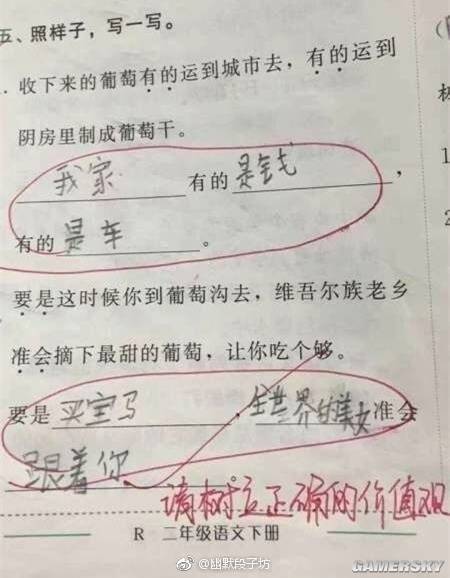 五、照样子，写一写。
. 收下来的葡萄有的运到城市去，有的运到
阴房里制成葡萄干。
我家有的是钱，
有的是车。
要是这时候你到葡萄沟去，维吾尔族老乡
准会摘下最甜的葡萄，让你吃个够。
要是买宝马，全世界的美女准会
跟着你。
请树立正确的价值观
R 二年级语文下册
@幽默段子坊
GAMERSKY
(
树
1
2